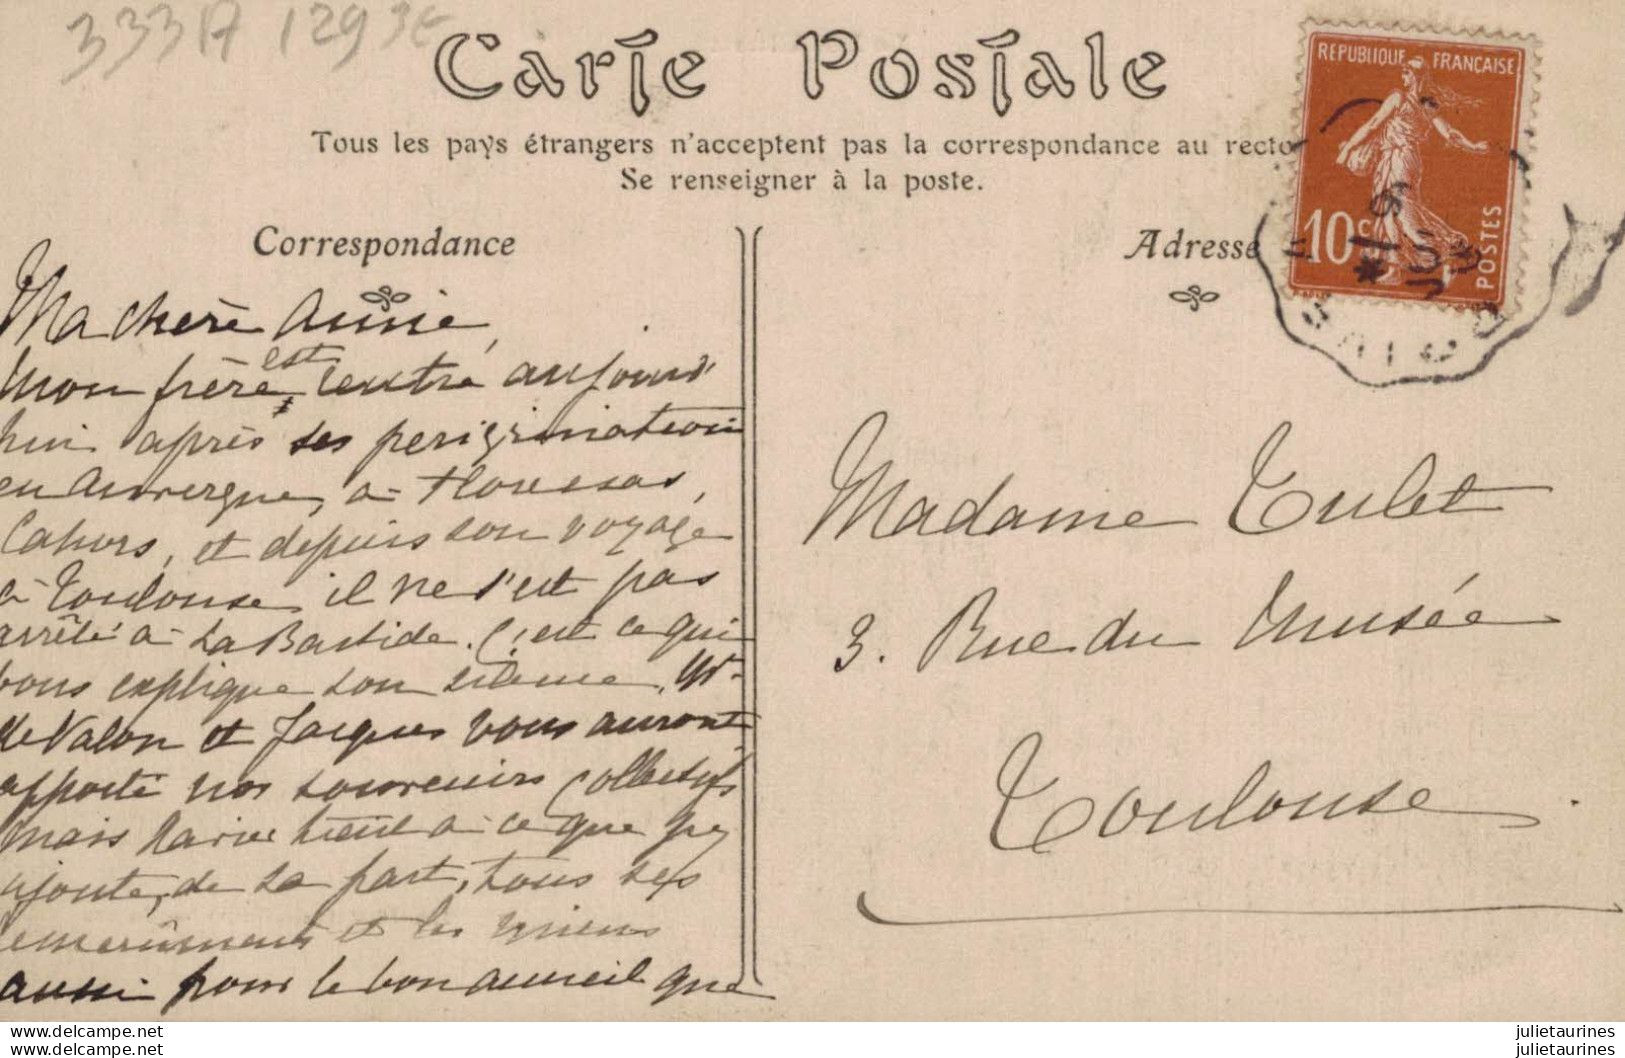 333A 1293E
Carte Postale
Tous les pays étrangers n'acceptent pas la correspondance au recto
Se renseigner à la poste.
Correspondance
Ma chère Amie,
Mon frère est rentré aujourd'
hui après ses perigrination
en Auvergne, à
Cahors, et depuis son voyage
à Toulouse il ne s'est pas
arrêté à La Bastide. C'est ce qui
vous explique son silence. Mr
de Valon et Jacques vous auront
apporté nos souvenirs collectifs
mais Marie tient à ce que j'y
ajoute, de sa part, tous ses
remerciements et les miens
aussi pour le bon accueil que
Adresse
REPUBLIQUE FRANÇAISE
10c
POSTES
Madame Tulet
3. Rue du Musée
Toulouse.
julietaurines.com
julietaurines.com
julietaurines
julietaurines